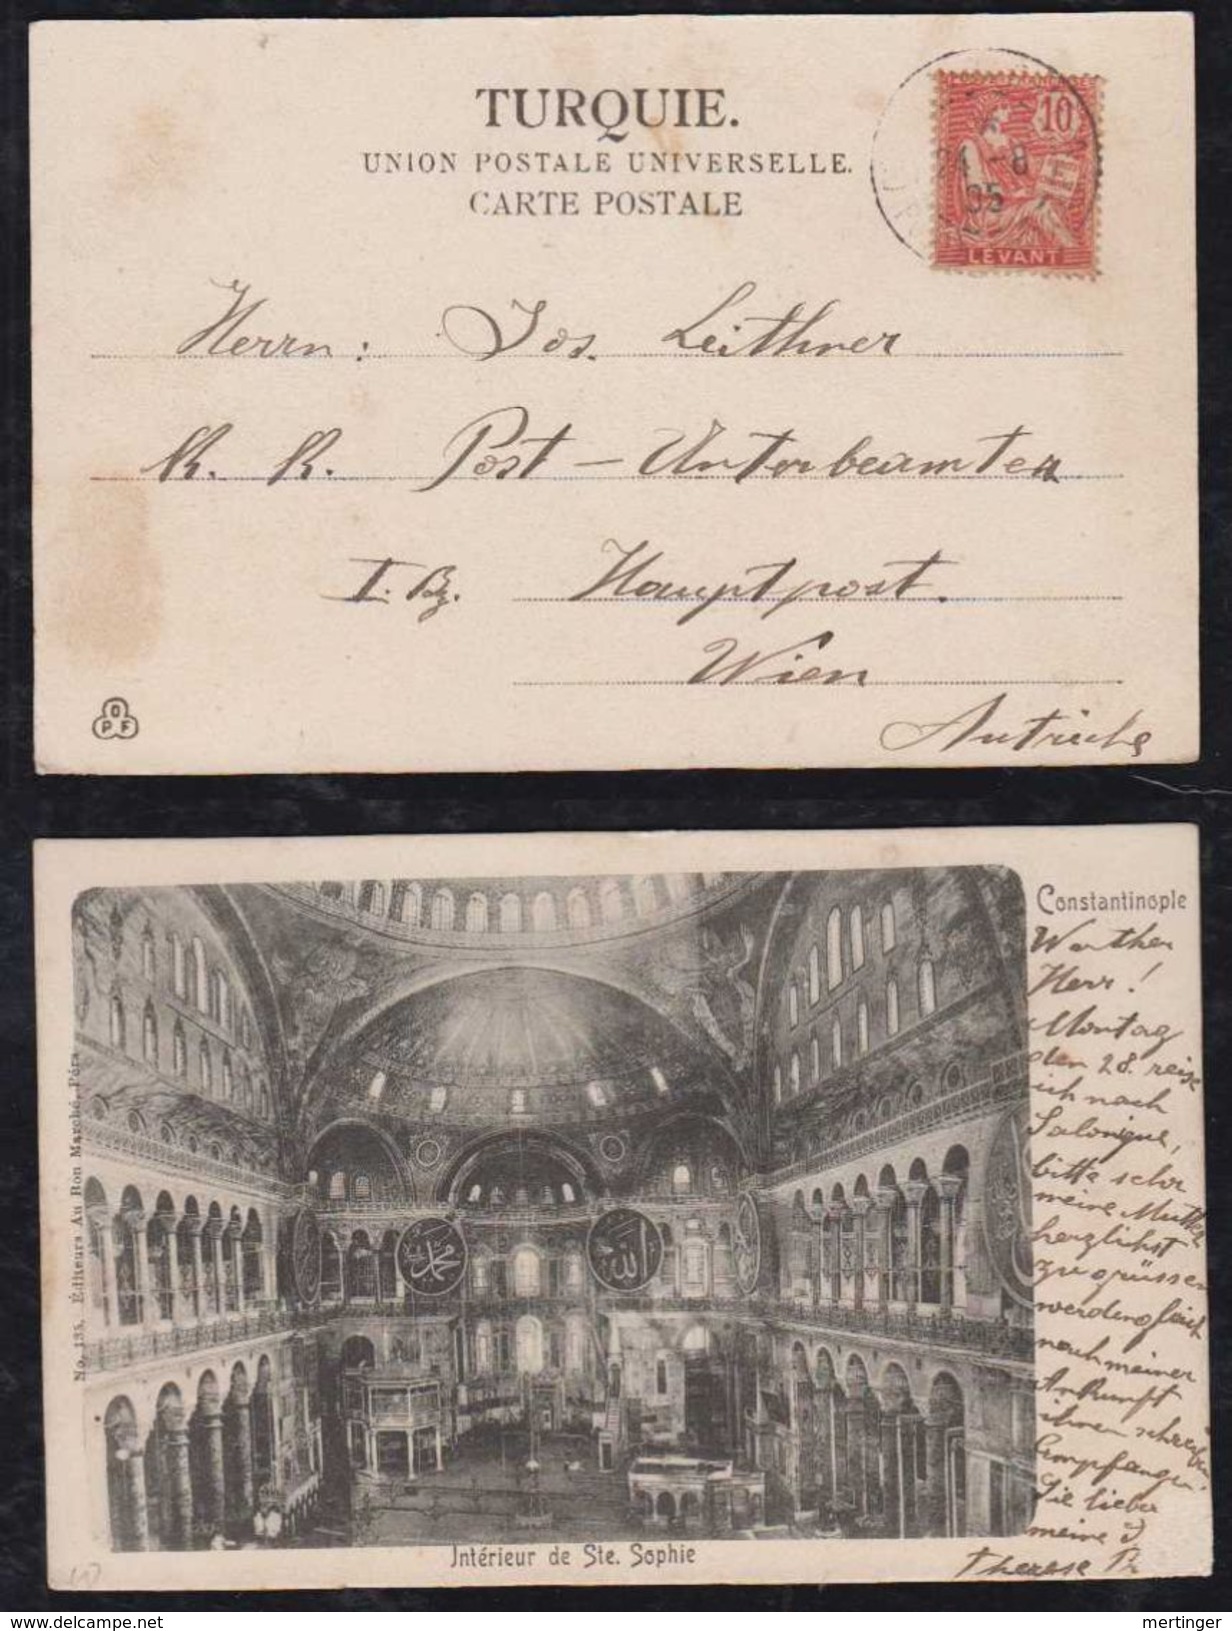 TURQUIE.
UNION POSTALE UNIVERSELLE.
CARTE POSTALE
POSTES FRANÇAISES
10
24 -8
05
LEVANT
Herrn: Jos. Leithner
K. K. Post-Unterbeamten
I. Bz. Hauptpost.
Wien
Autriche
O
P F
Constantinople
Werther
Herr!
Montag
den 28. reise
ich nach
Salonique,
bitte sehr
meine Mutter
herzlichst
zu grüssen
werde gleich
nach meiner
Ankunft
ihnen schreiben
Empfangen
Sie lieber
meine
Therese
No. 135. Éditeurs Au Bon Marché, Péra
محمد
الله
Intérieur de Ste. Sophie
www.delcampe.net
mertinger